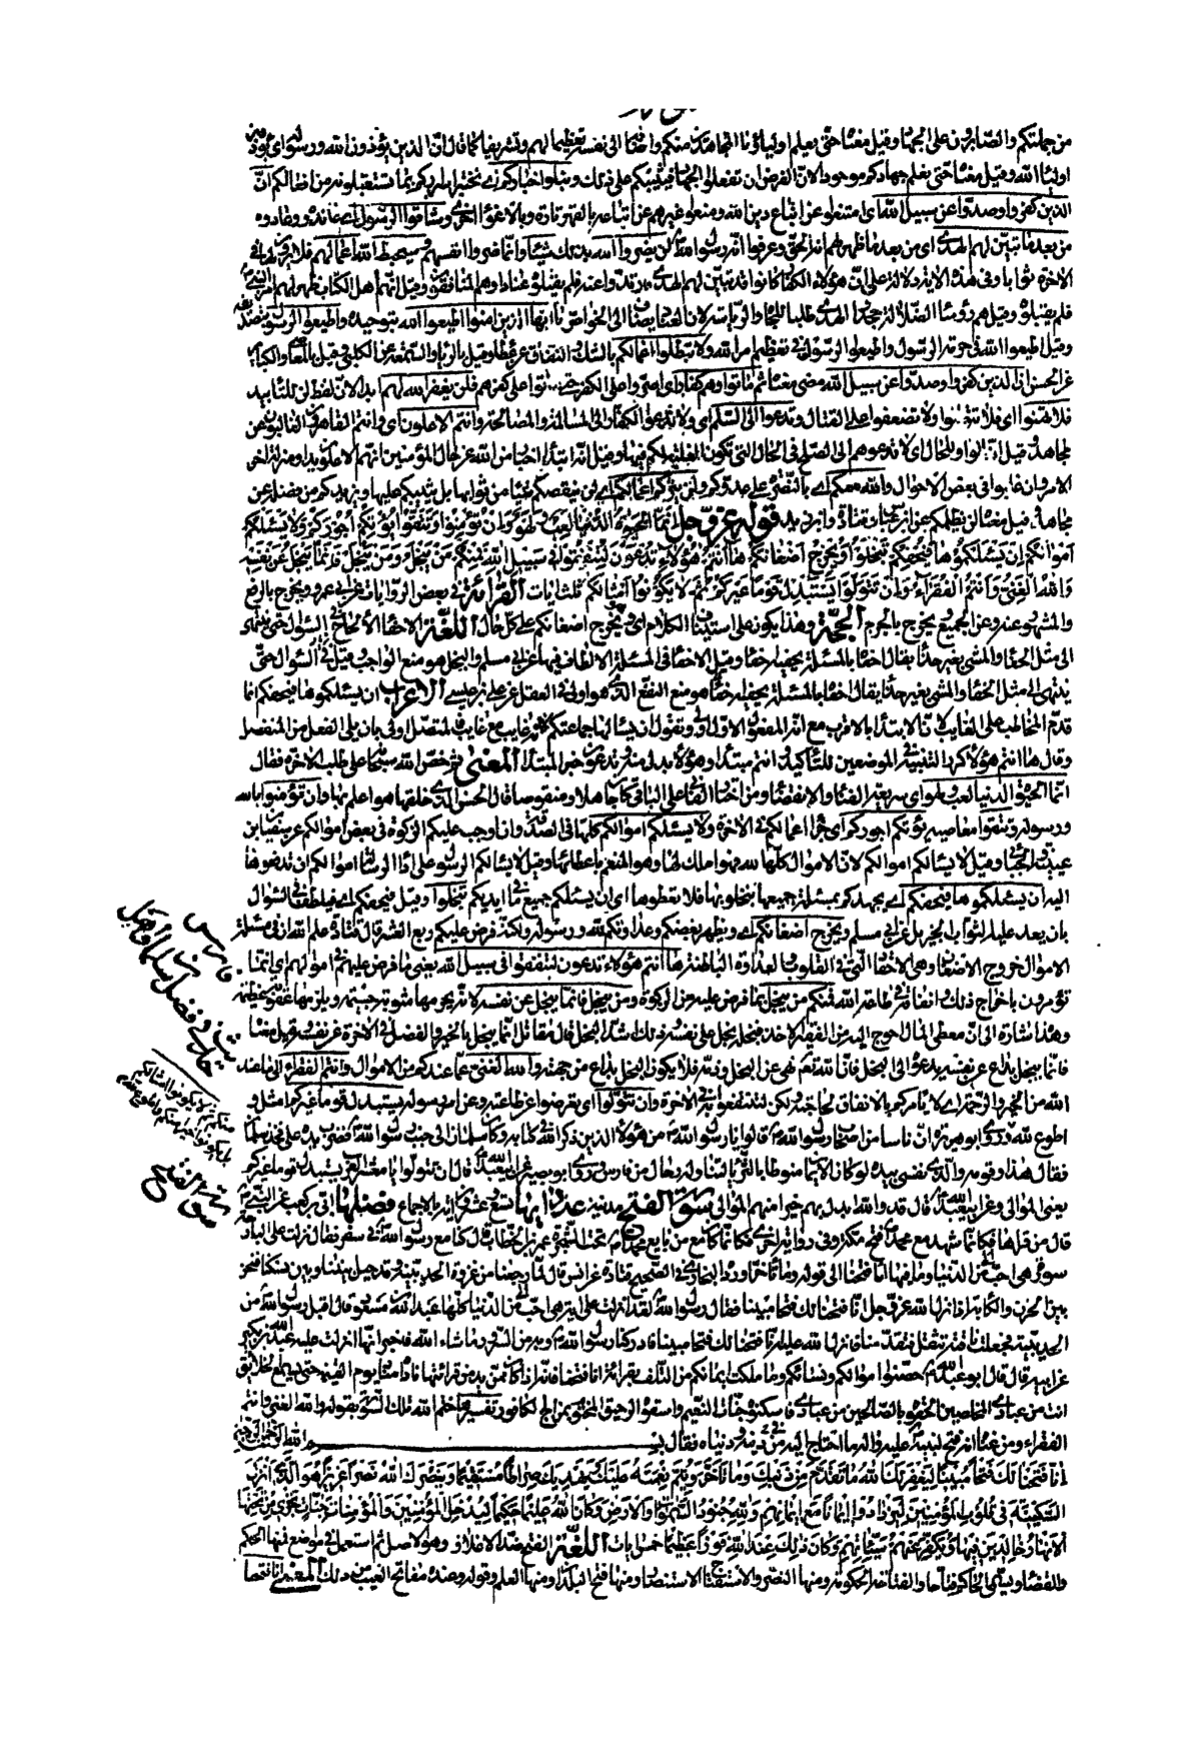 من جملتكم والصابرين على الجهاد وقيل معناه حتى يعلم اولياؤنا المجاهدين منكم واضافه الى نفسه تعظيما لهم وتشريفا كما قال ان الذين يؤذون الله ورسوله اى يؤذون
اولياء الله وقيل معناه حتى نعلم جهادكم موجودا لان الغرض ان تفعلوا الجهاد فيثيبكم على ذلك ونبلوا اخباركم اى نختبر اسراركم بما تستقبلونه من افعالكم ان
الذين كفروا وصدوا عن سبيل الله اى امتنعوا عن اتباع دين الله ومنعوا غيرهم عن اتباعه بالقهر تارة وبالاغواء اخرى وشاقوا الرسول اى عاندوه وعادوه
من بعد ما تبين لهم الهدى اى من بعد ما ظهر لهم انه الحق وعرفوا انه رسول الله لن يضروا الله بذلك شيئا وانما ضروا انفسهم وسيحبط الله اعمالهم فلا يرون لها فى
الاخرة ثوابا وفى هذه الاية دلالة على ان هؤلاء الكفار كانوا قد تبين لهم الهدى فارتدوا عنه فلم يقبلوه عنادا وهم المنافقون وقيل انهم اهل الكتاب ظهر لهم امر النبى
فلم يقبلوه وقيل هم رؤساء الضلالة جحدوا الهدى طلبا للجاه والرياسة لان العناد يضاف الى الخواص يا ايها الذين امنوا اطيعوا الله بتوحيده واطيعوا الرسول بتصديقه
وقيل اطيعوا الله فى حرمة الرسول واطيعوا الرسول فى تعظيم امر الله ولا تبطلوا اعمالكم بالشك والنفاق عن عطاء وقيل بالرياء والسمعة عن الكلبى وقيل بالمعاصى والكبائر
عن الحسن ان الذين كفروا وصدوا عن سبيل الله مضى معناه ثم ماتوا وهم كفار اى اصروا على الكفر حتى ماتوا على كفرهم فلن يغفر الله لهم ابدا لان لفظ لن للتأبيد
فلا تهنوا اى فلا تتوانوا ولا تضعفوا عن القتال وتدعوا الى السلم اى ولا تدعوا الكفار الى المسالمة والمصالحة وانتم الاعلون اى وانتم القاهرون الغالبون عن
مجاهد وقيل ان الواو للحال اى لا تدعوهم الى الصلح فى الحال التى تكون الغلبة لكم فيها وقيل انه ابتداء اخبار من الله عن حال المؤمنين انهم الاعلون يدا ومنزلة اخر
الامر وان غلبوا فى بعض الاحوال والله معكم اى بالنصرة على عدوكم ولن يتركم اعمالكم اى لن ينقصكم شيئا من ثوابها بل يثيبكم عليها ويزيدكم من فضله عن
مجاهد وقيل معناه لن يظلمكم عن ابن عباس وقتادة وابن زيد قوله عز وجل انما الحيوة الدنيا لعب ولهو وان تؤمنوا وتتقوا يؤتكم اجوركم ولا يسئلكم
اموالكم ان يسئلكموها فيحفكم تبخلوا ويخرج اضغانكم ها انتم هؤلاء تدعون لتنفقوا فى سبيل الله فمنكم من يبخل ومن يبخل فانما يبخل عن نفسه
والله الغنى وانتم الفقراء وان تتولوا يستبدل قوما غيركم ثم لا يكونوا امثالكم ثلث ايات القراءة فى بعض الروايات عن ابى عمرو ويخرج بالرفع
والمشهور عنه وعن الجميع يخرج بالجزم الحجة وهذا يكون على استيناف الكلام اى وهو يخرج اضغانكم على كل حال اللغة الاحفاء الالحاح فى السؤال حتى ينتهى
الى مثل الحفاء والمشى بغير حذاء يقال احفاه بالمسئلة يحفيه احفاء وقيل الاحفاء فى المسئلة الالطاف فيها عن ابى مسلم والبخل هو منع الواجب وقيل فى السؤال حتى
ينتهى الى مثل الحفاء والمشى بغير حذاء يقال احفاه بالمسئلة يحفيه احفاء هو منع النفع الذى هو اولى فى العقل عن على بن عيسى الاعراب ان يسئلكموها فيحفكم انما
قدم المخاطب على الغايب لان الابتداء بالاقرب مع انه المفعول الاول اولى وتقول ان يسألها جماعتكم لانه غايب مع غايب فالمتصل اولى بان يلى الفعل من المنفصل
وقال ها انتم هؤلاء كررت التنبيه فى الموضعين للتأكيد انتم مبتدأ وهؤلاء بدل منه وتدعون خبر المبتدأ المعنى ثم حض الله سبحانه على طلب الاخرة فقال
انما الحيوة الدنيا لعب ولهو اى سريعة الفناء والانقضاء ومن اختار الفانى على الباقى كان جاهلا ومنقوصا قال الحسن الذى خلقها هو اعلم بها وان تؤمنوا بالله
ورسوله وتتقوا معاصيه يؤتكم اجوركم اى جزاء اعمالكم فى الاخرة ولا يسئلكم اموالكم كلها فى الصدقة وان اوجب عليكم الزكوة فى بعض اموالكم عن سفيان بن
عيينة والجبائى وقيل لا يسئلكم اموالكم لان الاموال كلها لله فهو املك لها وهو المنعم باعطائها وقيل لا يسئلكم الرسول على اداء الرسالة اموالكم ان تدفعوها
اليه ان يسئلكموها فيحفكم اى يجهدكم بمسئلة جميعها تبخلوا بها فلا تعطوها اى ان يسئلكم جميع ما فى ايديكم تبخلوا وقيل فيحفكم اى فيلطف فى السؤال
بان يعد عليه الثواب الجزيل عن ابى مسلم ويخرج اضغانكم اى ويظهر بغضكم وعداوتكم لله ورسوله ولكنه فرض عليكم ربع العشر قال قتادة علم الله ان فى مسئلة
الاموال خروج الاضغان وهى الاحقاد التى فى القلوب والعداوة الباطنة ها انتم هؤلاء تدعون لتنفقوا فى سبيل الله يعنى ما فرض عليهم فى اموالهم اى انما
تؤمرون باخراج ذلك وانفاقه فى طاعة الله فمنكم من يبخل بما فرض عليه من الزكوة ومن يبخل فانما يبخل عن نفسه لانه يحرمها مثوبة جسيمة ويلزمها عقوبة عظيمة
وهذا اشارة الى ان معطى المال احوج اليه من الفقير الاخذ فبخله بخل على نفسه وذلك اشد البخل قال مقاتل انما يبخل بالخير والفضل فى الاخرة عن نفسه وقيل معناه
فانما يبخل بداع عن نفسه يدعوه الى البخل فان الله تعالى نهى عن البخل وذمه فلا يكون البخل بداع من جهته والله الغنى عما عندكم من الاموال وانتم الفقراء الى ما عند
الله من الخير والرحمة اى لا يأمركم بالانفاق لحاجته ولكن لتنتفعوا به فى الاخرة وان تتولوا اى تعرضوا عن طاعته وعن امر رسوله يستبدل قوما غيركم امثل و
اطوع لله وروى ابو هريرة ان ناسا من اصحاب رسول الله قالوا يا رسول الله من هؤلاء الذين ذكر الله فى كتابه وكان سلمان الى جنب رسول الله فضرب يده على فخذ سلمان
فقال هذا وقومه والذى نفسى بيده لو كان الايمان منوطا بالثريا لتناوله رجال من فارس وروى ابو بصير عن ابى عبد الله قال ان تتولوا يا معشر العرب يستبدل قوما غيركم
يعنى الموالى وعن ابى عبد الله قال قد والله ابدل بهم خيرا منهم الموالى سورة الفتح مدنية عدد ايها تسع وعشرون اية بالاجماع فضلها ابى بن كعب عن النبى
قال من قرأها فكانما شهد مع محمد فتح مكة وفى رواية اخرى فكانما كان مع من بايع محمدا تحت الشجرة عمر بن الخطاب قال كنا مع رسول الله فى سفر فقال نزلت على البارحة
سورة هى احب الى من الدنيا وما فيها انا فتحنا الى قوله وما تأخر اورده البخارى فى الصحيح قتادة عن انس قال لما رجعنا من غزوة الحديبية وقد حيل بيننا وبين نسكنا فنحن
بين الحزن والكابة اذ انزل الله عز وجل انا فتحنا لك فتحا مبينا فقال رسول الله لقد انزلت على اية هى احب الى من الدنيا كلها عبد الله بن مسعود قال اقبل رسول الله من
الحديبية فجعلت ناقته تثقل فتقدمنا فانزل الله عليه انا فتحنا لك فتحا مبينا فادركنا رسول الله وبه من السرور ما شاء الله فاخبر انها انزلت عليه عبد الله بن بكير
عن ابيه قال قال ابو عبد الله حصنوا اموالكم ونساءكم وما ملكت ايمانكم من التلف بقراءة انا فتحنا فانه اذا كان ممن يدمن قرائتها نادى مناد يوم القيمة حتى يسمع الخلايق
انت من عبادى المخلصين الحقوه بالصالحين من عبادى فاسكنوه جنات النعيم واسقوه الرحيق المختوم بمزاج الكافور تفسيرها ختم الله تلك السورة بقوله والله الغنى وانتم
الفقراء ومن غناه انه فتح لنبيه عليه واله ما احتاج اليه من دينه ودنياه فقال بسم الله الرحمن الرحيم
انا فتحنا لك فتحا مبينا ليغفر لك الله ما تقدم من ذنبك وما تأخر ويتم نعمته عليك ويهديك صراطا مستقيما وينصرك الله نصرا عزيزا هو الذى انزل
السكينة فى قلوب المؤمنين ليزدادوا ايمانا مع ايمانهم ولله جنود السموات والارض وكان الله عليما حكيما ليدخل المؤمنين والمؤمنات جنات تجرى من تحتها
الانهار خالدين فيها ويكفر عنهم سيئاتهم وكان ذلك عند الله فوزا عظيما خمس ايات اللغة الفتح ضد الاغلاق وهو الاصل ثم استعمل فى مواضع فمنها الحكم
والقضاء ويسمى الحاكم فتاحا والفتاحة الحكومة ومنها النصر والاستفتاح الاستنصار ومنها فتح البلدان ومنها العلم وقوله وعنده مفاتح الغيب من ذلك المعنى انا فتحنا
سورة الفتح